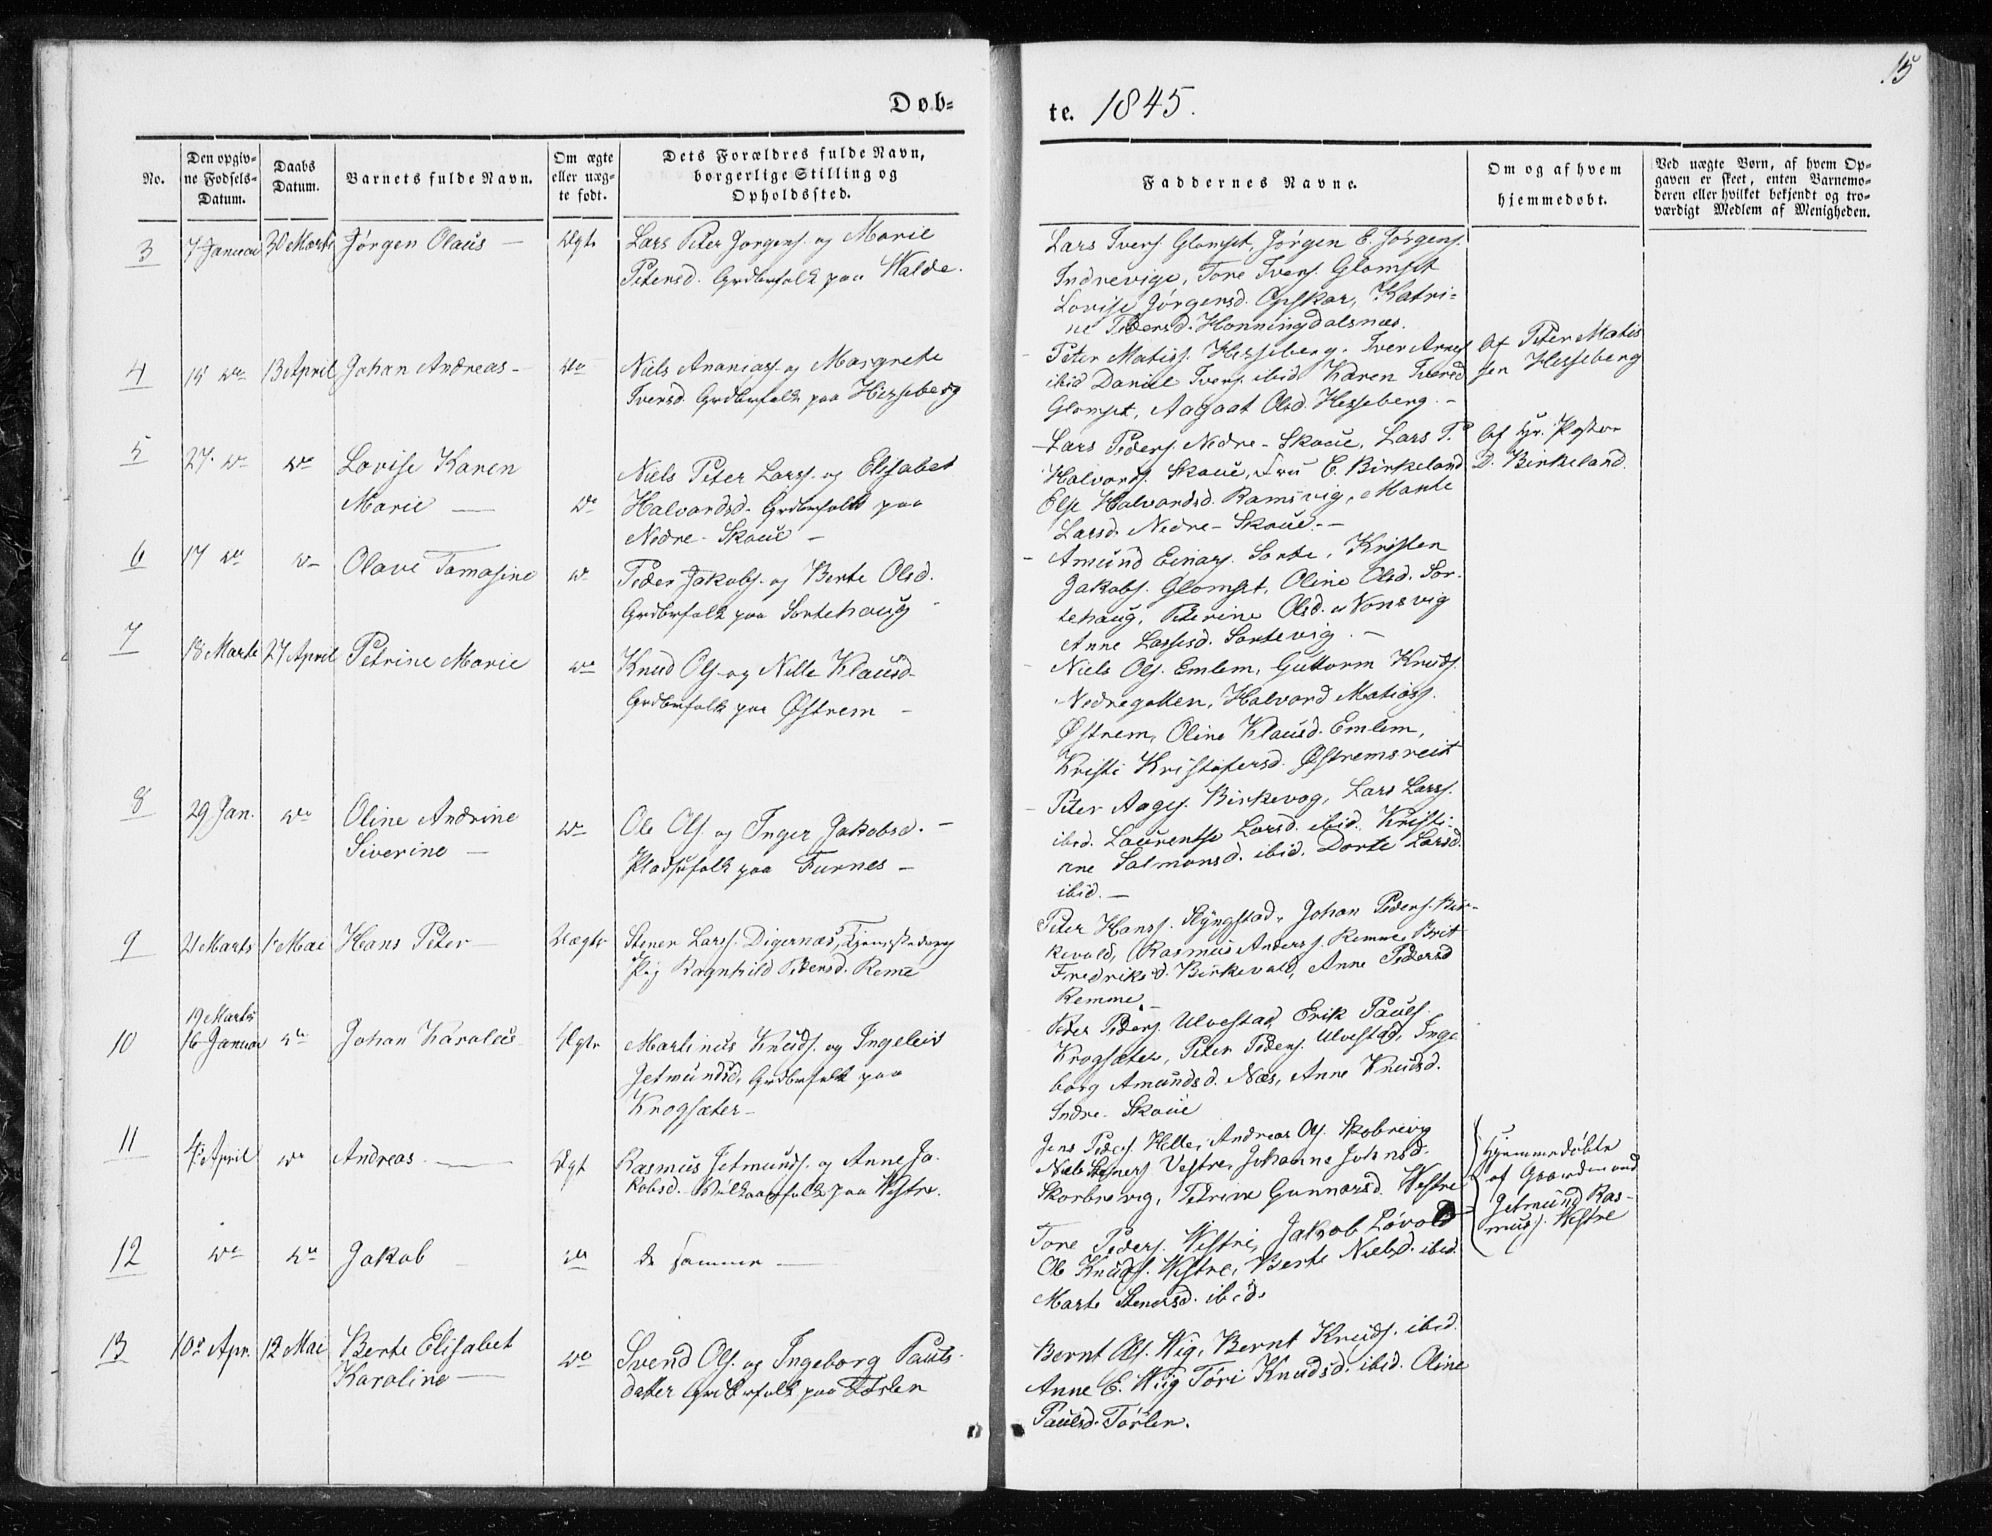 15
Døb-
te. 1845.
No.
Den opgiv-
ne Fødsels-
Datum.
Daabs
Datum.
Barnets fulde Navn.
Om ægte
eller uæg-
te født.
Dets Forældres fulde Navn,
borgerlige Stilling og
Opholdssted.
Faddernes Navne.
Om og af hvem
hjemmedøbt.
Ved uægte Børn, af hvem Op-
gaven er skeet, enten Barnemo-
deren eller hvilket bekjendt og tro-
værdigt Medlem af Menigheden.
3 7 Januar 30 Marts Jørgen Olaus — Ægte
Lars Peter Jørgens. og Marie
Petersd. Grdbrfolk paa Walde.
Lars Ivers. Glomset, Jørgen E. Jørgens.
Indrevige, Tore Ivers. Glomset
Lovise Jørgensd. Opskar, Katri-
ne Pedersd. Honningdalsnæs.
4 15 do 13 April Johan Andreas — do
Niels Ananiass. og Margrete
Iversd. Grdbrfolk paa Hesseberg
Peter Matiss. Hesseberg, Iver Arnes.
ibid Daniel Ivers. ibid. Karen Iversd
Glomset, Aagaat Olsd. Hesseberg. —
Af Peter Matis
sen Hesseberg
5 27 do do Lovise Karen
Marie — do
Niels Peter Larss. og Elisabet
Halvardsd. Grdbrfolk paa
Nedre-Skoue —
Lars Peders. Nedre-Skoue, Lars P.
Halvards. Skoue, Fru E. Birkeland
Else Halvardsd. Ramsvig, Marte
Larsd. Nedre-Skoue. —
Af Hr. Pastor
D. Birkeland.
6 17 do do Olave Tomasine do
Peder Jakobs. og Berte Olsd.
Grdbrfolk paa Sortehaug —
Amund Einars. Sorte, Kristen
Jakobs. Glomset, Oline Olsd. Sor-
tehaug, Peterine Olsd. Nonsvig
Anne Lassesd. Sortevig. —
7 18 Marts 27 April Petrine Marie do
Knud Ols. og Nille Klausd.
Grdbrfolk paa Østrem —
Niels Ols. Emlem, Guttorm Knuds.
Nedregotten, Halvard Matiass.
Østrem, Oline Klausd. Emlem,
Kristi Kristofersd. Østremsreit
8 29 Jan. do Oline Andrine
Siverine — do
Ole Ols. og Inger Jakobsd. —
Pladsfolk paa Furnes —
Peter Aages. Birkevog, Lars Larss.
ibid. Laurentse Larsd. ibid. Kristi-
ane Salmonsd. ibid. Dorte Larsd.
ibid. —
9 21 Marts 1 Mai Hans Peter — Uægte
Stener Larss. Digernæs, Tjenestedreng
Pig Ragnhild Petersd. Reme
Peter Hanss. Slyngstad, Johan Peders. Bir-
kevold, Rasmus Anderss. Remme Brit
Fredriksd. Birkevold, Anne Pedersd
Remme. —
10 19 Marts
16 Januar do Johan Karolus Ægte
Martinus Knuds. og Ingeleiv
Jetmundsd. Grdbrfolk paa
Krogsæter —
Peter Peders. Ulvestad, Erik Pauls.
Krogsæter, Peter Peders. Ulvestad, Inge
borg Amundsd. Næs, Anne Knudsd.
Indre-Skoue
11 4 April do Andreas — Ægt
Rasmus Jetmunds. og Anne Ja-
kobsd. paa Westre.
Jens Peders. Helle, Andreas Ols. Skobrevig
Niels Steners. Vestre, Johanne Johnsd.
Skorbrevig, Petrine Gunnarsd. Westre
Hjemmedøbte
af Gaardmand
Jetmund Ras-
muss. Westre
12 do do Jakob do
de samme —
Tore Peders. Westre, Jakob Løvold
Ole Knuds. Westre, Berte Nielsd. ibid.
Marte Stenersd. ibid.
13 10 Apr. 12 Mai Berte Elisabet
Karoline — do
Svend Ols. og Ingeborg Pauls-
datter Grdbrfolk paa Tørlen
Bernt Ols. Wig, Bernt Knuds. ibid.
Anne E. Wiig Tori Knudsd. ibid. Oline
Paulsd. Tørlen.